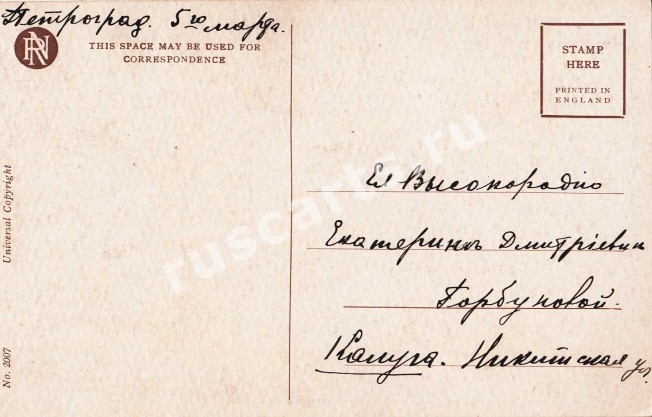 Петроград. 5го марта.
RN
THIS SPACE MAY BE USED FOR
CORRESPONDENCE
STAMP
HERE
PRINTED IN
ENGLAND
Universal Copyright
No. 2007
Ея Высокородію
Екатеринѣ Дмитріевнѣ
Горбуновой.
Калуга. Никитская ул.
ruscarts.ru